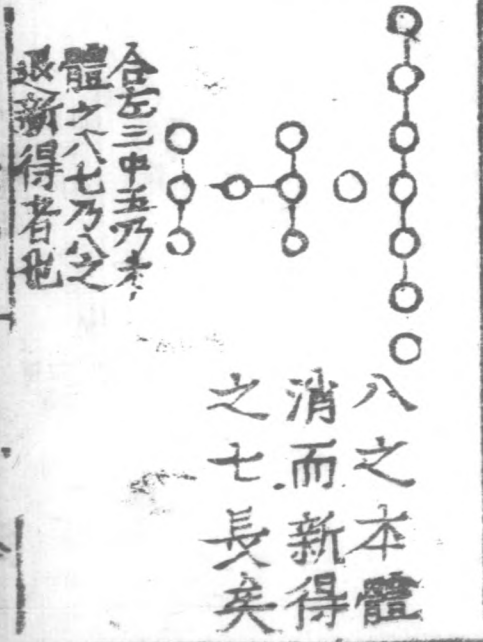 八之本體
消而新得
之七長矣
合左三中五乃本
體之八七乃八之
退新得者也